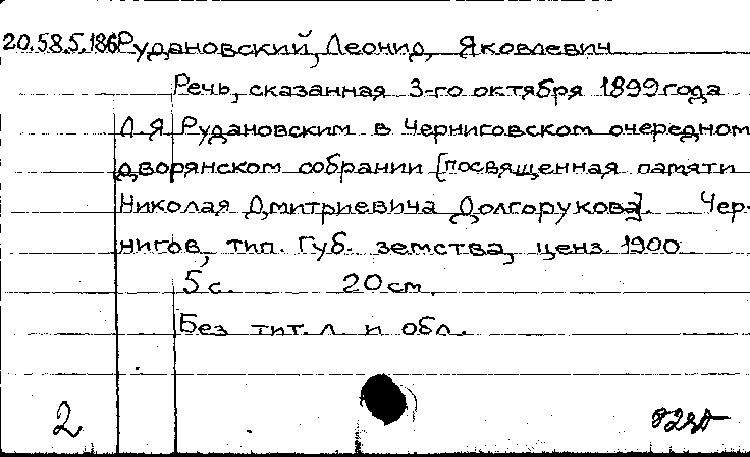 20.58.5.186 Рудановский, Леонид, Яковлевич
Речь, сказанная 3-го октября 1899 года
Л.Я. Рудановским в Черниговском очередном
дворянском собрании [посвященная памяти
Николая Дмитриевича Долгорукова]. Чер-
нигов, тип. Губ. земства, ценз. 1900
5 с. 20 см.
Без тит. л. и обл.
2